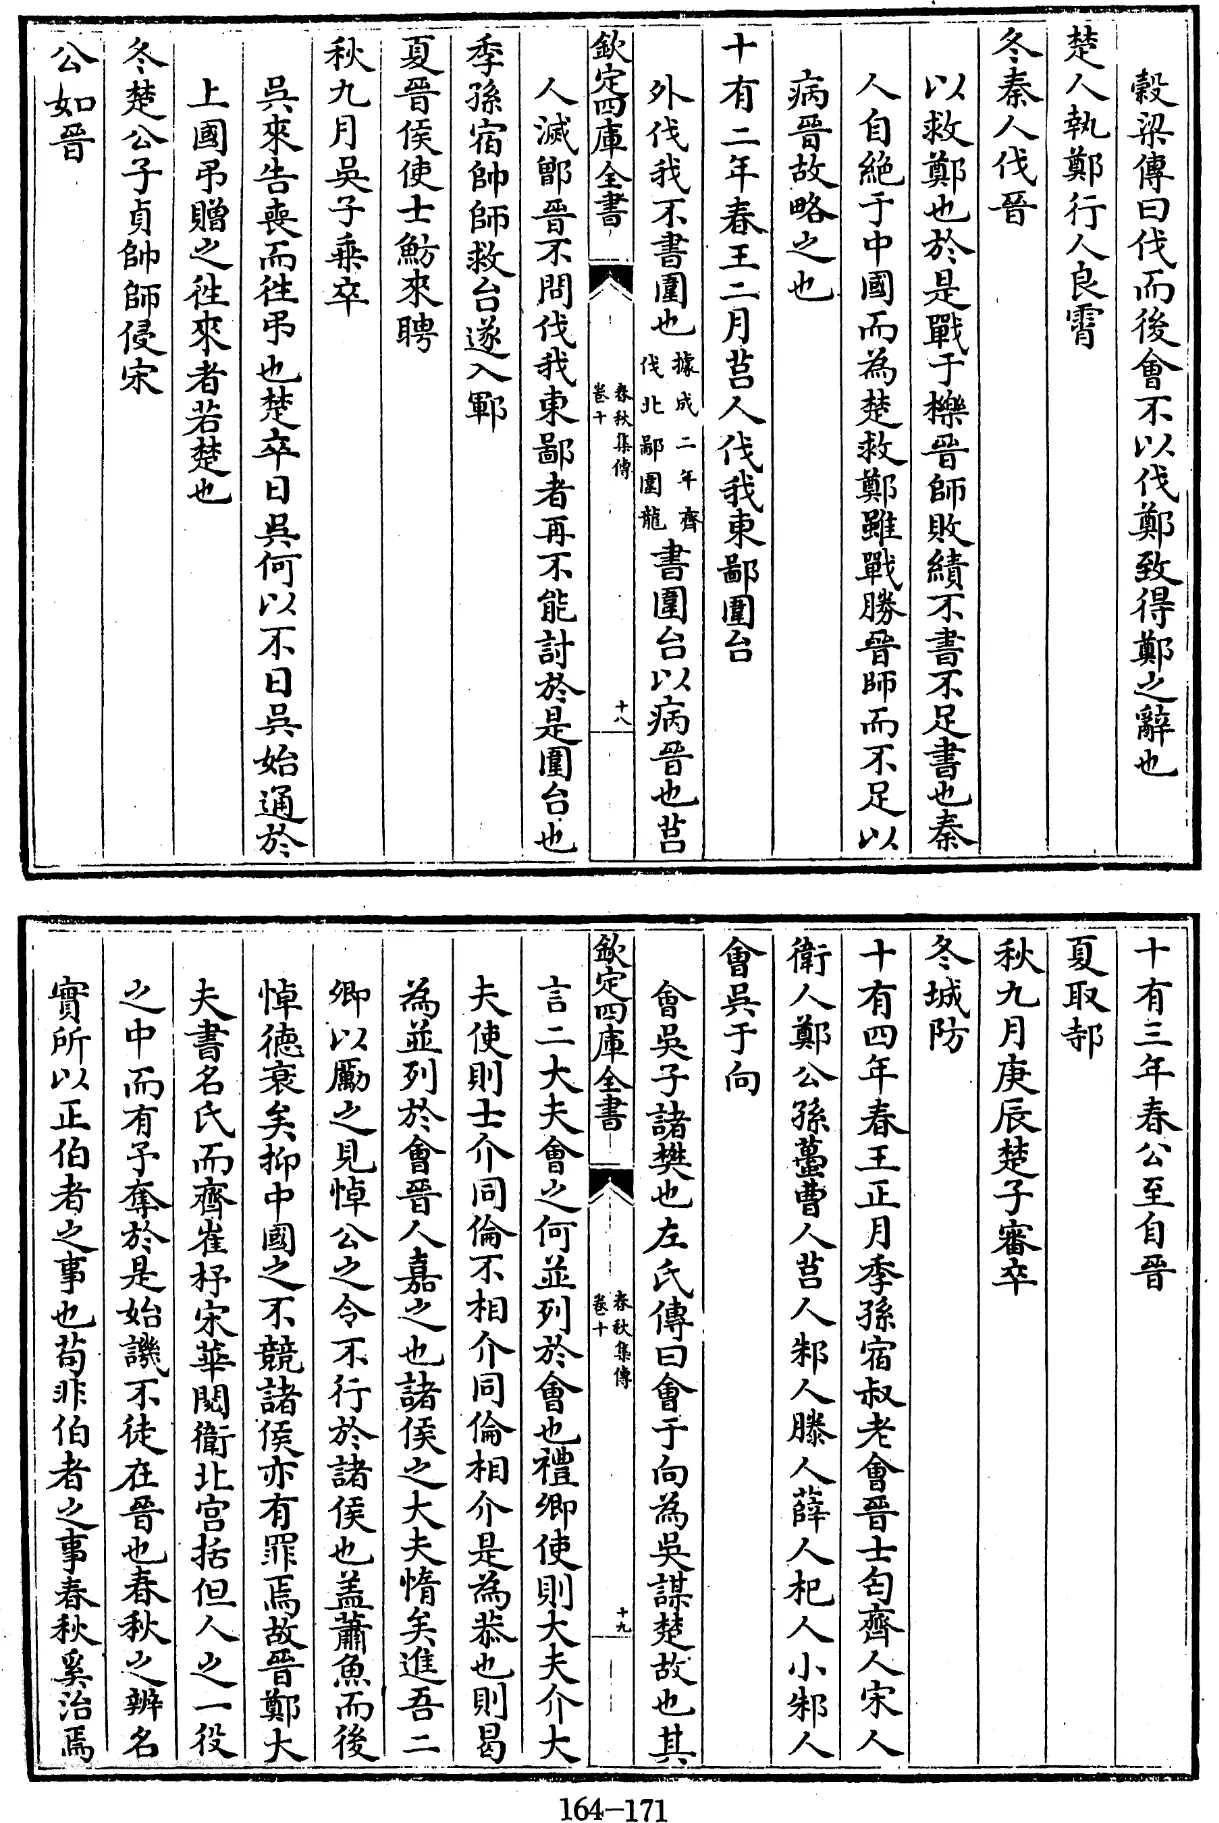 穀梁傳曰伐而後會不以伐鄭致得鄭之辭也
楚人執鄭行人良霄
冬秦人伐晉
以救鄭也於是戰于櫟晉師敗績不書不足書也秦
人自絶于中國而為楚救鄭雖戰勝晉師而不足以
病晉故略之也
十有二年春王二月莒人伐我東鄙圍台
外伐我不書圍也據成二年齊伐北鄙圍龍書圍台以病晉也莒
欽定四庫全書
春秋集傳
卷十
十八
人滅鄫晉不問伐我東鄙者再不能討於是圍台也
季孫宿帥師救台遂入鄆
夏晉侯使士魴來聘
秋九月吳子乗卒
吳來告喪而往弔也楚卒日吳何以不日吳始通於
上國弔贈之往來者若楚也
冬楚公子貞帥師侵宋
公如晉
十有三年春公至自晉
夏取邿
秋九月庚辰楚子審卒
冬城防
十有四年春王正月季孫宿叔老會晉士匄齊人宋人
衛人鄭公孫蠆曹人莒人邾人滕人薛人杞人小邾人
會吳于向
會吳子諸樊也左氏傳曰會于向為吳謀楚故也其
欽定四庫全書
春秋集傳
卷十
十九
言二大夫會之何並列於會也禮卿使則大夫介大
夫使則士介同倫不相介同倫相介是為恭也則曷
為並列於會晉人嘉之也諸侯之大夫惰矣進吾二
卿以勵之見悼公之令不行於諸侯也盖蕭魚而後
悼徳衰矣抑中國之不競諸侯亦有罪焉故晉鄭大
夫書名氏而齊崔杼宋華閱衛北宫括但人之一役
之中而有予奪於是始譏不徒在晉也春秋之辨名
實所以正伯者之事也茍非伯者之事春秋奚治焉
164-171